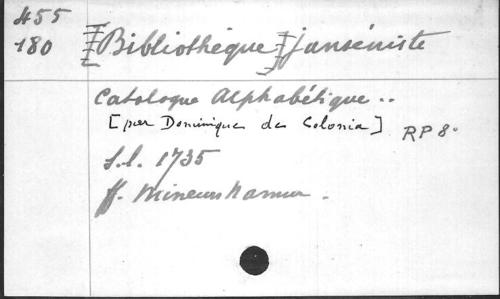 455
180 [Bibliothèque] Janséniste
Catalogue Alphabétique ..
[par Dominique de Colonia] RP 8°
S.l. 1735
ff. Mineurs Namur.